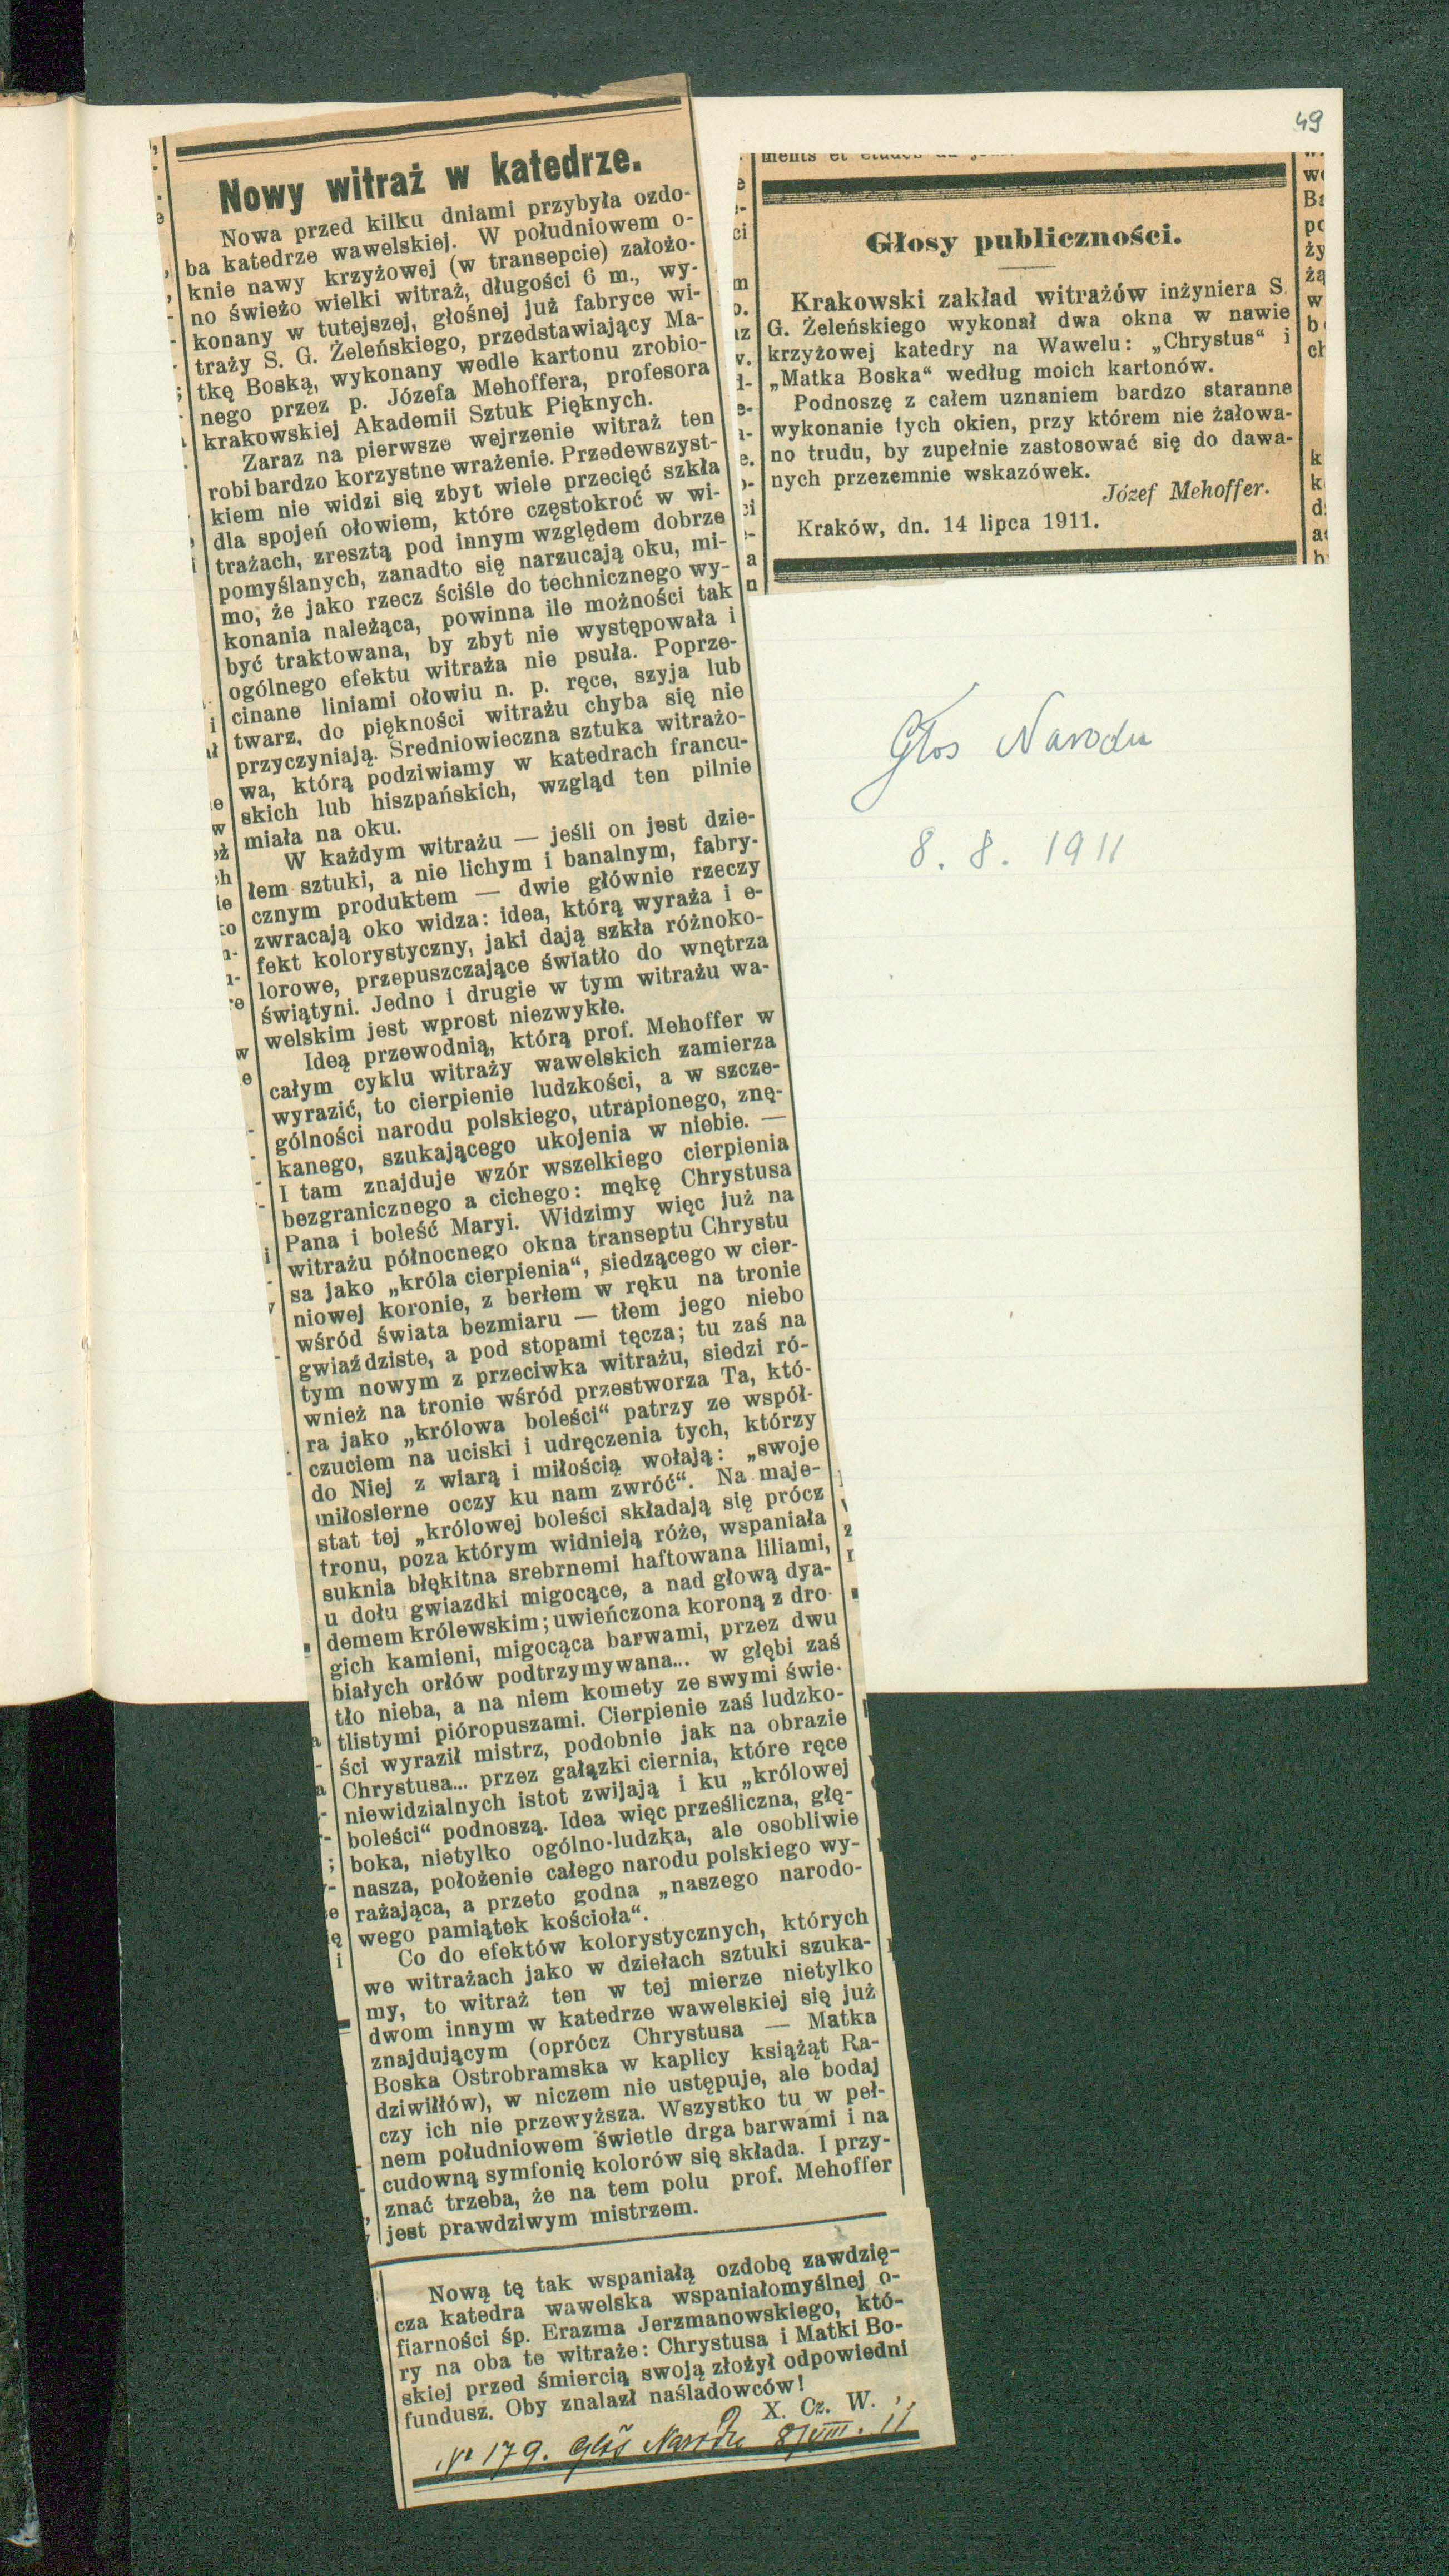 49
Nowy witraż w katedrze.
Nowa przed kilku dniami przybyła ozdo-
ba katedrze wawelskiej. W południowem o-
knie nawy krzyżowej (w transepcie) założo-
no świeżo wielki witraż, długości 6 m., wy-
konany w tutejszej, głośnej już fabryce wi-
traży S. G. Żeleńskiego, przedstawiający Ma-
tkę Boską, wykonany wedle kartonu zrobio-
nego przez p. Józefa Mehoffera, profesora
krakowskiej Akademii Sztuk Pięknych.
Zaraz na pierwsze wejrzenie witraż ten
robi bardzo korzystne wrażenie. Przedewszyst-
kiem nie widzi się zbyt wiele przecięć szkła
dla spojeń ołowiem, które częstokroć w wi-
trażach, zresztą pod innym względem dobrze
pomyślanych, zanadto się narzucają oku, mi-
mo, że jako rzecz ściśle do technicznego wy-
konania należąca, powinna ile możności tak
być traktowana, by zbyt nie występowała i
ogólnego efektu witraża nie psuła. Poprze-
cinane liniami ołowiu n. p. ręce, szyja lub
twarz, do piękności witrażu chyba się nie
przyczyniają. Średniowieczna sztuka witrażo-
wa, którą podziwiamy w katedrach francu-
skich lub hiszpańskich, wzgląd ten pilnie
miała na oku.
W każdym witrażu — jeśli on jest dzie-
łem sztuki, a nie lichym i banalnym, fabry-
cznym produktem — dwie głównie rzeczy
zwracają oko widza: idea, którą wyraża i e-
fekt kolorystyczny, jaki dają szkła różnoko-
lorowe, przepuszczające światło do wnętrza
świątyni. Jedno i drugie w tym witrażu wa-
welskim jest wprost niezwykłe.
Ideą przewodnią, którą prof. Mehoffer w
całym cyklu witraży wawelskich zamierza
wyrazić, to cierpienie ludzkości, a w szcze-
gólności narodu polskiego, utrapionego, znę-
kanego, szukającego ukojenia w niebie. —
I tam znajduje wzór wszelkiego cierpienia
bezgranicznego a cichego: mękę Chrystusa
Pana i boleść Maryi. Widzimy więc już na
witrażu północnego okna transeptu Chrystu
sa jako „króla cierpienia“, siedzącego w cier-
niowej koronie, z berłem w ręku na tronie
wśród świata bezmiaru — tłem jego niebo
gwiaździste, a pod stopami tęcza; tu zaś na
tym nowym z przeciwka witrażu, siedzi ró-
wnież na tronie wśród przestworza Ta, któ-
ra jako „królowa boleści“ patrzy ze współ-
czuciem na uciski i udręczenia tych, którzy
do Niej z wiarą i miłością wołają: „swoje
miłosierne oczy ku nam zwróć“. Na maje-
stat tej „królowej boleści składają się prócz
tronu, poza którym widnieją róże, wspaniała
suknia błękitna srebrnemi haftowana liliami,
u dołu gwiazdki migocące, a nad głową dya-
demem królewskim; uwieńczona koroną z dro-
gich kamieni, migocąca barwami, przez dwu
białych orłów podtrzymywana... w głębi zaś
tło nieba, a na niem komety ze swymi świe-
tlistymi pióropuszami. Cierpienie zaś ludzko-
ści wyraził mistrz, podobnie jak na obrazie
Chrystusa... przez gałązki ciernia, które ręce
niewidzialnych istot zwijają i ku „królowej
boleści“ podnoszą. Idea więc prześliczna, głę-
boka, nietylko ogólno-ludzka, ale osobliwie
nasza, położenie całego narodu polskiego wy-
rażająca, a przeto godna „naszego narodo-
wego pamiątek kościoła“.
Co do efektów kolorystycznych, których
we witrażach jako w dziełach sztuki szuka-
my, to witraż ten w tej mierze nietylko
dwom innym w katedrze wawelskiej się już
znajdującym (oprócz Chrystusa — Matka
Boska Ostrobramska w kaplicy książąt Ra-
dziwiłłów), w niczem nie ustępuje, ale bodaj
czy ich nie przewyższa. Wszystko tu w peł-
nem południowem świetle drga barwami i na
cudowną symfonię kolorów się składa. I przy-
znać trzeba, że na tem polu prof. Mehoffer
jest prawdziwym mistrzem.
Nową tę tak wspaniałą ozdobę zawdzię-
cza katedra wawelska wspaniałomyślnej o-
fiarności śp. Erazma Jerzmanowskiego, któ-
ry na oba te witraże: Chrystusa i Matki Bo-
skiej przed śmiercią swoją złożył odpowiedni
fundusz. Oby znalazł naśladowców!
X. Cz. W.
No 179. Głos Narodu 8/VIII. 11
Głosy publiczności.
Krakowski zakład witrażów inżyniera S.
G. Żeleńskiego wykonał dwa okna w nawie
krzyżowej katedry na Wawelu: „Chrystus“ i
„Matka Boska“ według moich kartonów.
Podnoszę z całem uznaniem bardzo staranne
wykonanie tych okien, przy którem nie żałowa-
no trudu, by zupełnie zastosować się do dawa-
nych przezemnie wskazówek.
Józef Mehoffer.
Kraków, dn. 14 lipca 1911.
Głos Narodu
8. 8. 1911